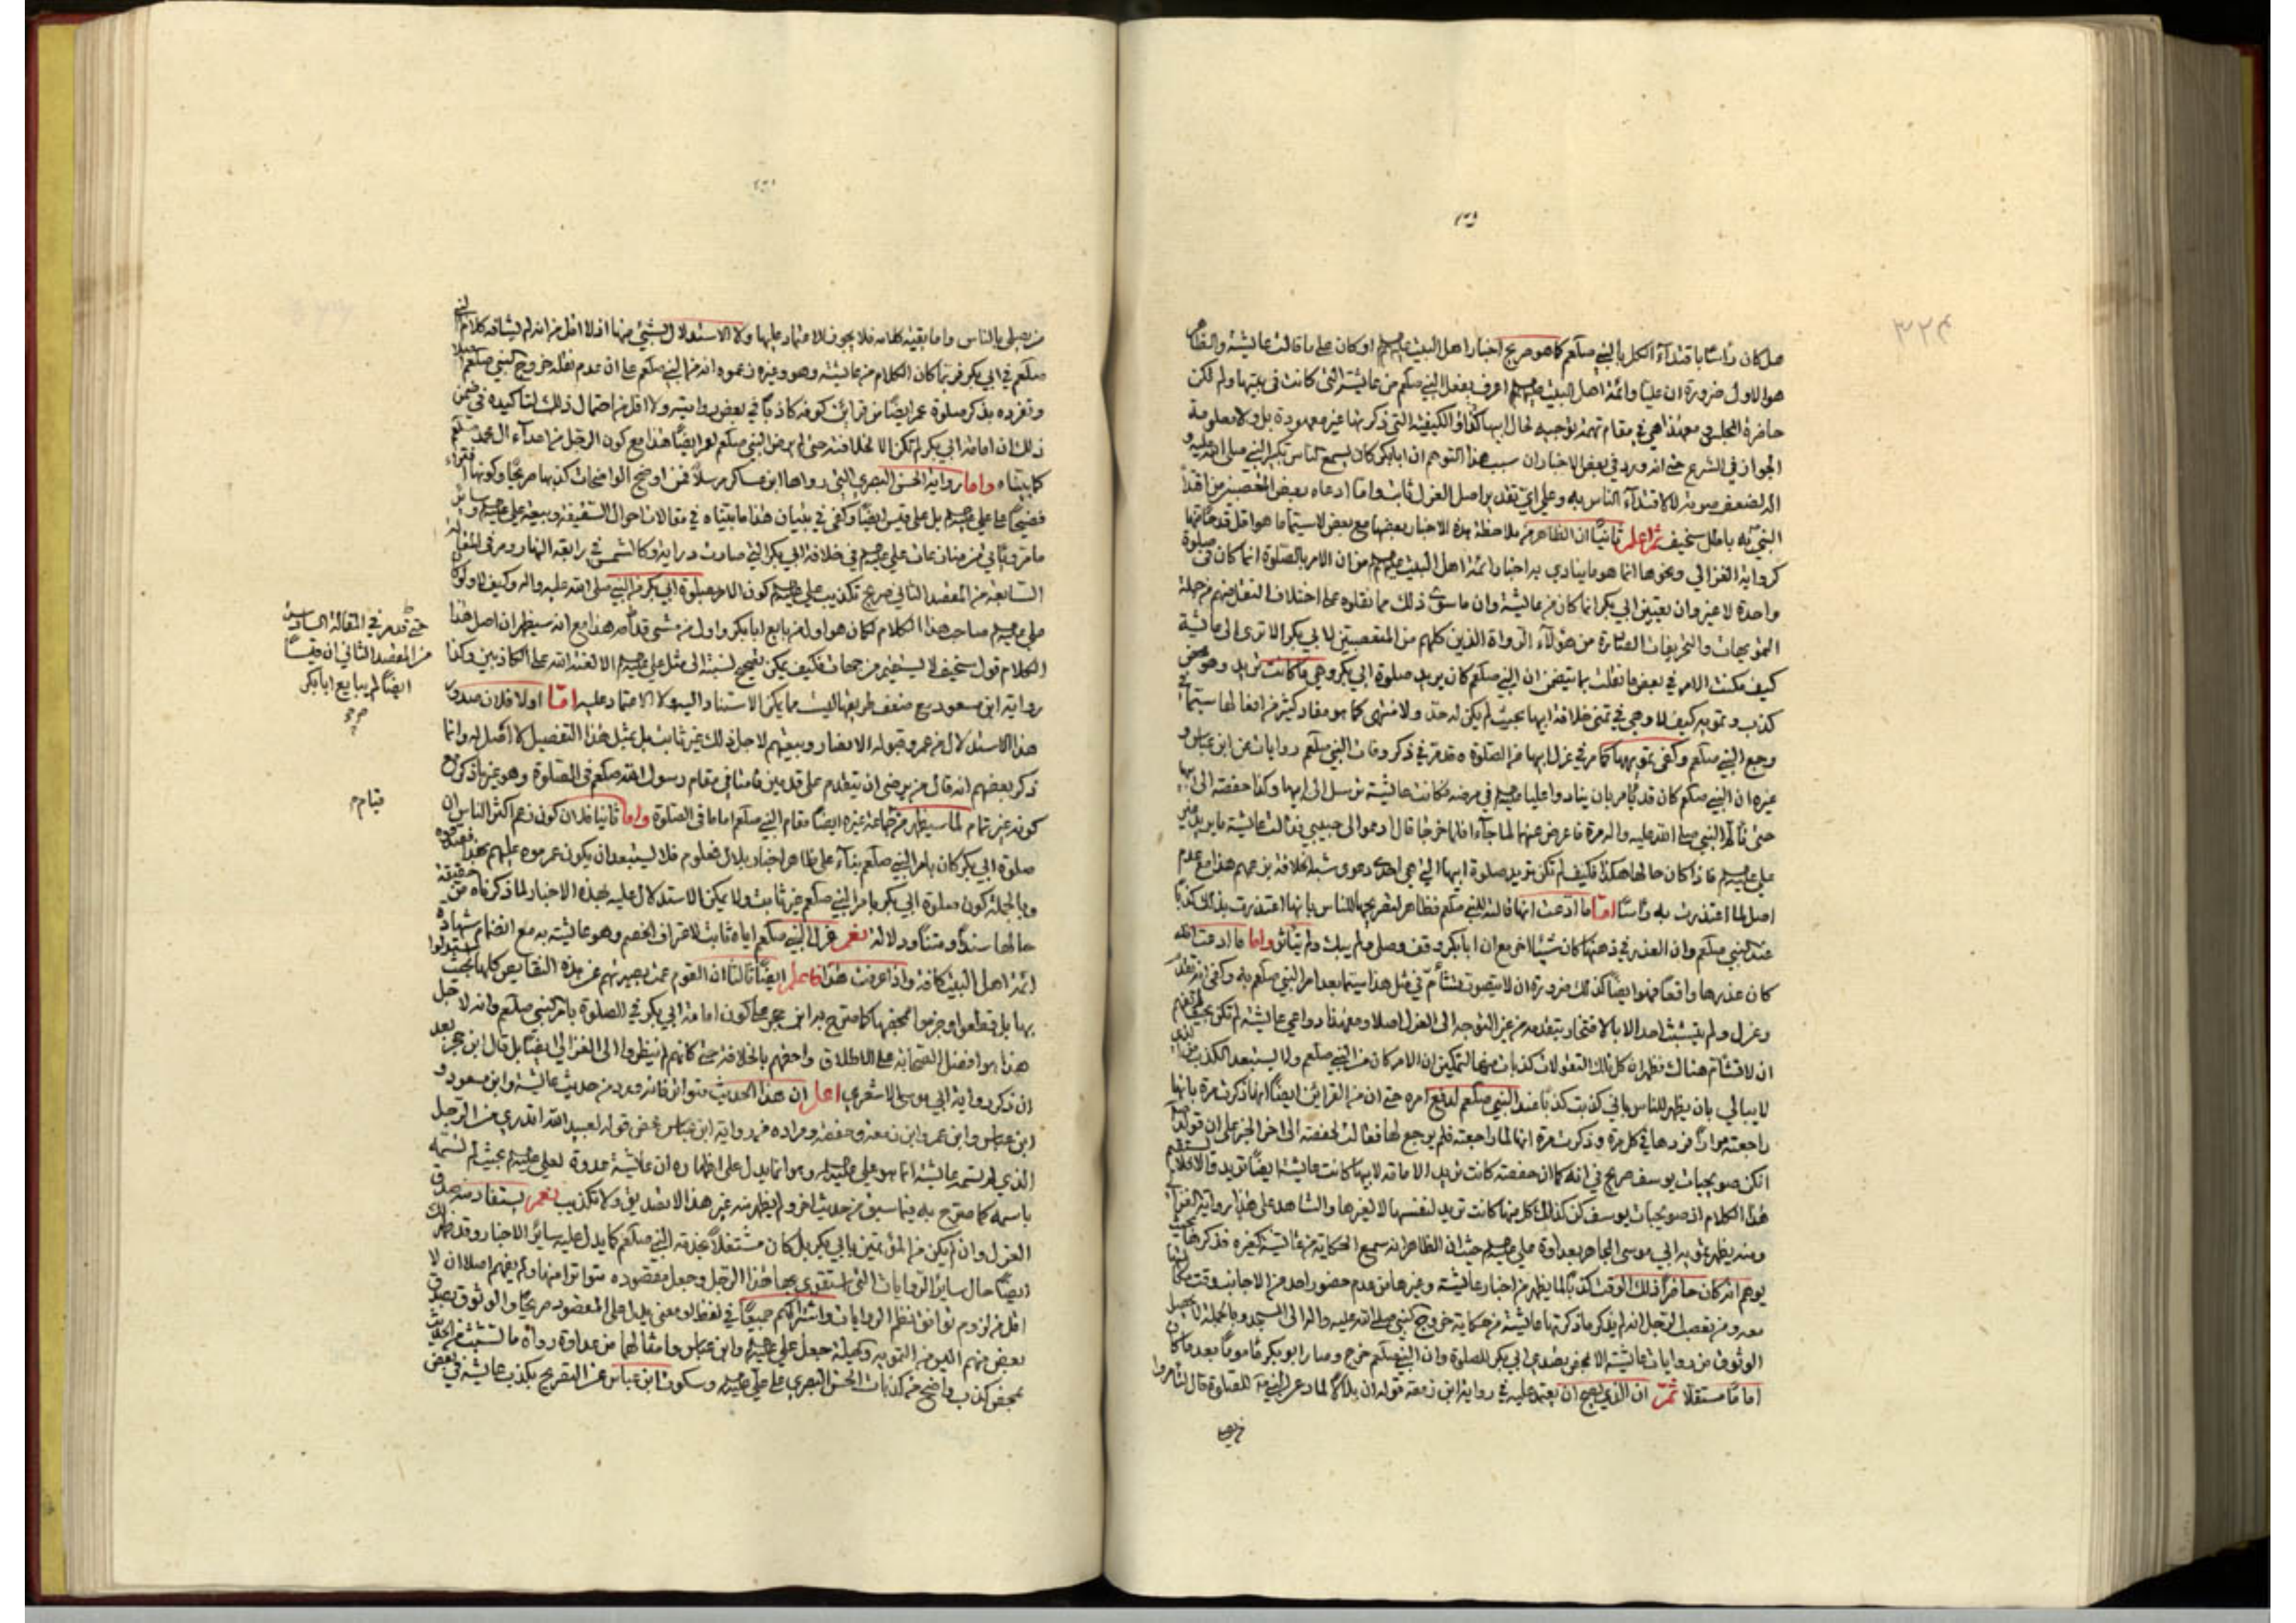 هل كان رأسا باقتدآء الكل بالنبي صلعم كما هو صريح اخبار اهل البيت عليهم او كان على ما قالت عايشة
هو الاول ضرورة ان عليا وائمة اهل البيت عليهم اعرف بفعل النبي صلعم من عايشة التي كانت في بيتها ولم تكن
حاضرة المجلس ومعهذا هي في مقام تهمة توجيه لحال ابيها الكيفية التي ذكرتها غير معهودة بل ولا معلومة
الجواز في الشرع حتى انه ورد في بعض الاخبار ان سبب هذا التوهم ان ابابكر كان يسمع الناس تكبير النبي صلى الله عليه و
اله لضعف صوته لا لاقتدآء الناس به وعلى اي تقدير اصل العزل ثابت واما ما ادعاه بعض
النبي به باطل سخيف ثم اعلم ثانيا ان الظاهر من ملاحظة هذه الاخبار بعضها مع بعض لا سيما ما هو اقل
كرواية الغزالي ونحوها انما هو ما ينادي به اخبار ائمة اهل البيت عليهم من ان الامر بالصلوة انما كان في صلوة
واحدة لا غير وان تعيين ابي بكر انما كان من عايشة وان ما سوى ذلك مما نقلوه على اختلاف النقل منهم من جملة
التمويهات والتحريفات الصادرة من هؤلآء الرواة الذين كلهم من المتعصبين لابي بكر الا ترى الى عايشة
كيف مكنت الامر في بعض ما نقلت بما يتضمن ان النبي صلعم كان يريد صلوة ابي بكر وهي ما كانت تريد وهو محض
كذب وتمويه كيف لا وهي في تمنى خلافة ابيها بحيث لم يكن له حد ولا منتهى كما هو مفاد كثير من افعالها سيما في
وجع النبي صلعم وكفى تمويهها كما مر في عزل ابيها من الصلوة وقد مر في ذكر وفات النبي صلعم روايات عن ابن عباس و
غيره ان النبي صلعم كان قد يأمر بان ينادوا عليا عليه في مرضه فكانت عايشة ترسل الى ابيها وكذا حفصة الى ابيها
حتى قال لهما النبي صلى الله عليه واله مرة فاعرض عنهما لما جآءا فلما خرجا قال ادعوا الى حبيبي فقالت عايشة ما يريد غير
علي عليه فاذا كان حالها هكذا فكيف لم تكن تريد صلوة ابيها التي هي احدى دعوى شبه الخلافة بزعمهم هذا مع عدم
اصل لما اعتذرت به رأسا اما ما ادعت انها قالت للنبي صلعم فظاهر لتصريحها للناس بانها اعتذرت بذلك كذبا
عند النبي صلعم وان العذر في ذهنها كان شيئا اخر مع ان ابابكر وقف وصلى ولم يبك ولم يتأثر واما ما ادعت انه
كان عذرها واقعا فهو ايضا كذلك ضرورة ان لا يتصور تشأم في مثل هذا سيما بعد امر النبي صلعم به وكفى
وعزل ولم يتشبث احد الا بالافتخار بتقدمه من غير التوجه الى العزل اصلا ومعهذا دواعي عايشة لم تكن
ان لا تشأم هناك فظهر ان كل تلك التقولات كذبات منها لتمكين ان الامر كان من النبي صلعم ولا يستبعد الكذب
لا يبالي بان يظهر للناس باني كذبت كذبا عند النبي صلعم لدفع امره حتى ان من القراين ايضا انها ذكرت مرة بانها
راجعته مرارا في كل مرة وذكرت مرة انها لما راجعته فلم يرجع لها فقالت لحفصة الى اخر الخبر على ان قوله
انكن صويحبات يوسف صريح في انه كما ان حفصة كانت تريد الامامة لابيها كانت عايشة ايضا تريد
هذا الكلام اذ صويحبات يوسف كن كذلك كل منها كانت تريد لنفسها لا لغيرها والشاهد على هذا رواية
ومنه يظهر تمويه ابي موسى المجاهر بعداوة علي عليه حيث ان الظاهر انه سمع الحكاية من عايشة كغيره فذكرها بحيث
يوهم انه كان حاضرا ذلك الوقت كذبا لما يظهر من اخبار عايشة وغيرها من عدم حضور احد من الاجانب وقت
معه ومن تعصب الرجل انه لم يذكر ما ذكرتها عايشة من حكاية خروج النبي صلى الله عليه واله الى المسجد وبالجملة
الوثوق من روايات عايشة الا بمحض تصدي ابي بكر للصلوة وان النبي صلعم خرج وصار ابوبكر مأموما بعد ما كان
اماما مستقلا ثم ان الذي يصح ان يعتمد عليه في رواية ابن زمعة قوله ان بلالا لما دعى النبي للصلوة قال
من يصلي بالناس واما بقية كلامه فلا يجوز الاعتماد عليها ولا الاستدلال بشيء منها اذ لا اقل من انه لم يشافه كلام النبي
صلعم في ابي بكر فربما كان الكلام من عايشة وهو وغيره زعموه انه من النبي صلعم على ان عدم نقله خروج النبي صلعم
وتفرده بذكر صلوة عمر ايضا من قراين كونه كاذبا في بعض روايته ولا اقل من احتمال ذلك لتأكيده في ضمن
ذلك ان امامة ابي بكر لم تكن الا لخلافته حتى لم يرض النبي صلعم لعمر ايضا هذا مع كون الرجل من اعدآء ال محمد صلعم
كما بيناه واما رواية الحسن البصري التي رواها ابن عساكر مرسلا فمن اوضح الواضحات كذبها صريحا وكونها
فضيحا على علي عليه بل على قيس ايضا وكفى في بيان هذا ما بيناه في مقالات احوال السقيفة وبيعة علي عليه وساير
ما مر ويأتي من منازعات علي عليه في خلافة ابي بكر التي صارت دراية وكالشمس في رابعة النهار ومر في المقالة
السابعة من المقصد الثاني صريح تكذيب علي عليه كون الامر بصلوة ابي بكر من النبي صلى الله عليه واله وكيف لا ولو كان
علي عليه صاحب هذا الكلام لكان هو اول من بايع ابابكر واول من مشى قدامه هذا مع انه سيظهر ان اصل هذا
الكلام قول سخيف لا يستقيم من جهات فكيف يمكن تصحيح نسبته الى مثل علي عليه الا لعنة الله على الكاذبين وكذا
رواية ابن مسعود مع ضعف طريقها ليست مما يمكن الاستناد اليه ولا الاعتماد عليه اما اولا فلان صدور
هذا الاستدلال من عمر وقبوله الانصار وبيعتهم لاجل ذلك غير ثابت بل بمثل هذا التفصيل لا اصل له وانما
ذكر بعضهم انه قال من يرضى ان يتقدم على قدمين قامتا في مقام رسول الله صلعم في الصلوة وهو غير ما ذكر مع
كونه غير تمام لما سيظهر من جماعة غيره ايضا مقام النبي صلعم اماما في الصلوة واما ثانيا فلان كون زعم اكثر الناس ان
صلوة ابي بكر كان بامر النبي صلعم بناء على ظاهر اخبار بلال فمعلوم فلا يستبعد ان يكون عمر موه عليهم بهذا
وبالجملة كون صلوة ابي بكر بامر النبي صلعم غير ثابت ولا يمكن الاستدلال عليه بهذه الاخبار لما ذكرناه من حقيقة
حالها سندا ومتنا ودلالة نعم عزل النبي صلعم اياه ثابت لاعتراف الخصم وهو عايشة به مع انضمام شهادة
ائمة اهل البيت كافة واذا عرفت هذا فاعلم ايضا ثالثا ان القوم عميت بصيرتهم عن هذه النقايص كلها بحيث
بها بل قطعوا وجزموا بمحضها كما صرح به ابن حجر بكون امامة ابي بكر في الصلوة بامر النبي صلعم وانه لاجل
هذا هو افضل الصحابة على الاطلاق واحقهم بالخلافة حتى كانهم لم ينظروا الى العزل ايضا بل قال ابن حجر بعد
ان ذكر رواية ابي موسى الاشعري اعلم ان هذا الحديث متواتر فانه ورد من حديث عايشة وابن مسعود و
ابن عباس وابن عمر وابن زمعة وحفصة ومراده من رواية ابن عباس محض قوله لعبيد الله اتدري من الرجل
الذي لم يسمه عايشة انما هو علي عليه وهو انما يدل على اظهاره ان عايشة عدوة لعلي عليه بحيث لم تسمه
باسمه كما صرح به فيما سبق من حديث اخر ولم يظهر منه غير هذا لا تصديق ولا تكذيب نعم يستفاد منه صدق
العزل وان لم يكن من المؤتمين بابي بكر بل كان مشتغلا عند النبي صلعم كما يدل عليه ساير الاخبار وقد ظهر لك
ايضا حال ساير الروايات التي استقوى بها هذا الرجل وجعل مقصوده متواترا منها ولم يفهم اصلا ان لا
اقل من لزوم توافق نظم الروايات واشتراكهم جميعا في لفظ او معنى يدل على المقصود صريحا والوثوق بصدق
بعض منهم اليس من التمويه والحيلة جعل علي عليه وابن عباس وامثالهما من عداد رواة ما تشبث من الحديث
بمحض كذب واضح من كذبات الحسن البصري على علي عليه وسكوت ابن عباس عن التصريح بكذب عايشة في بعض
حتى قد مر في المقالة السادسة
من المقصد الثاني ان قيسا
ايضا لم يبايع ابابكر
قيام